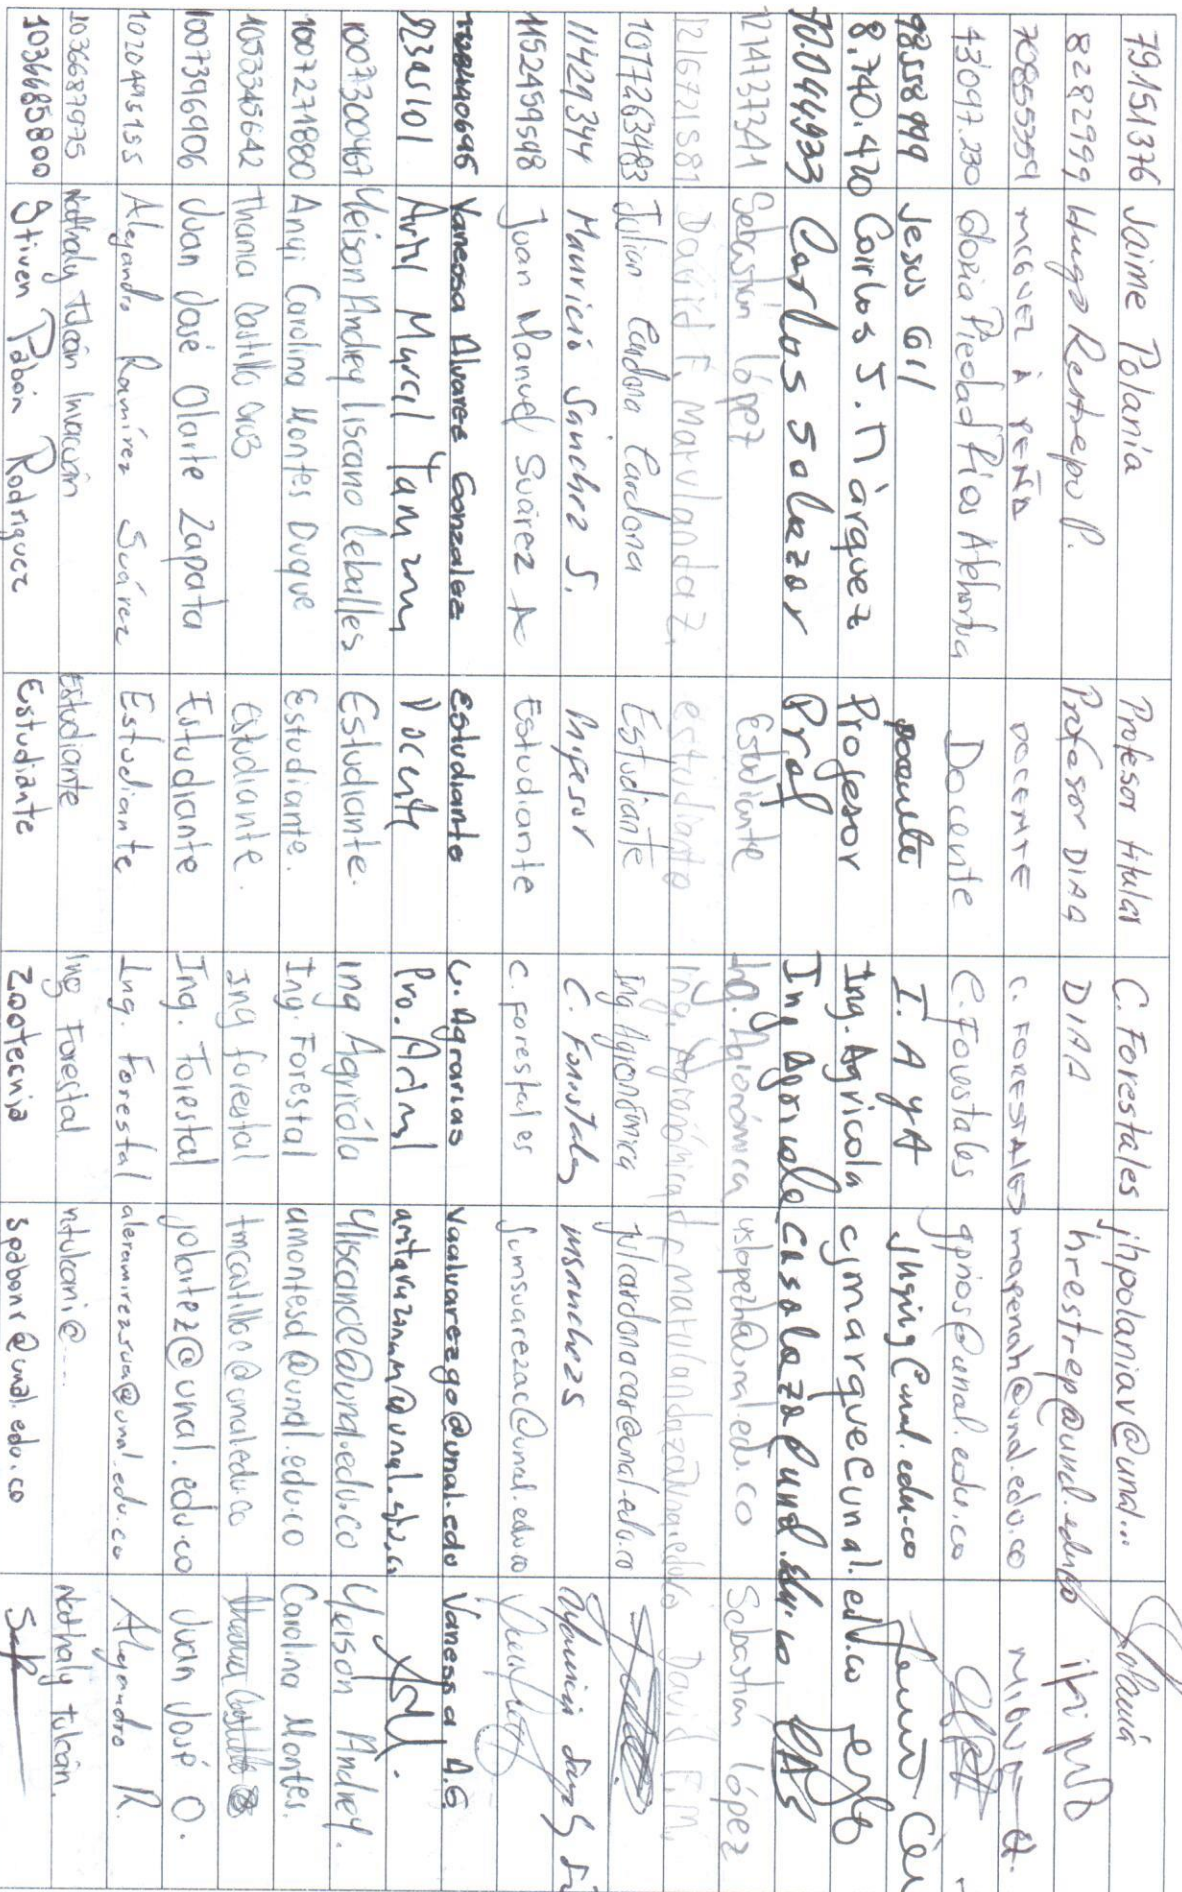 79151376 Jaime Polanía Profesor titular C. Forestales jhpolaniav@unal...
8282999 Hugo Restrepo P. Profesor DIAA DIAA hrestrep@unal.edu.co
70855359 MIGUEL A PEÑA DOCENTE C. FORESTALES magenah@unal.edu.co
43097.230 Gloria Piedad Ríos Docente C. Forestales gprios@unal.edu.co
98558999 Jesus Gil Docente I. A y A jhging@unal.edu.co
8.740.470 Carlos J. Márquez Profesor Ing. Agricola cjmarque@unal.edu.co
70.044933 Carlos Salazar Prof Ing Agricola casalaza@unal.edu.co
1214737341 Sebastián López Estudiante Ing. Agronómica uslopezh@unal.edu.co Sebastián López
1216721581 David F. Marulanda Z. estudiante Ing. Agronómica David F.M.
1017263483 Julian Cardona Cardona Estudiante Ing. Agronómica julcardonacar@unal.edu.co
71429344 Mauricio Sánchez S. Profesor C. Forestales msanchezs
1152459598 Juan Manuel Suárez A Estudiante C. Forestales jumsuarezac@unal.edu.co
Vanessa Alvarez Gonzalez Estudiante C. Agrarias vaalvarezgo@unal.edu Vanessa A.G
Docente
1007300467 Yeison Andrey Liscano Ceballes Estudiante. ing Agrícola yliscanoc@unal.edu.co Yeison Andrey.
1007271880 Angi Carolina Montes Duque Estudiante. Ing. Forestal amontesd@unal.edu.co Carolina Montes.
1053345642 Thania Castillo Cruz Estudiante. Ing forestal tmcastilloc@unal.edu.co
1007396906 Juan José Olarte Zapata Estudiante Ing. Forestal jolartez@unal.edu.co Juan José O.
1020495155 Alejandro Ramírez Suárez Estudiante Ing. Forestal aleramirezsua@unal.edu.co Alejandro R.
1036687975 Nathaly Tulcán Estudiante Ing Forestal ntulcani@.... Nathaly Tulcán.
1036685800 Stiven Pabón Rodriguez Estudiante Zootecnia spabonr@unal.edu.co